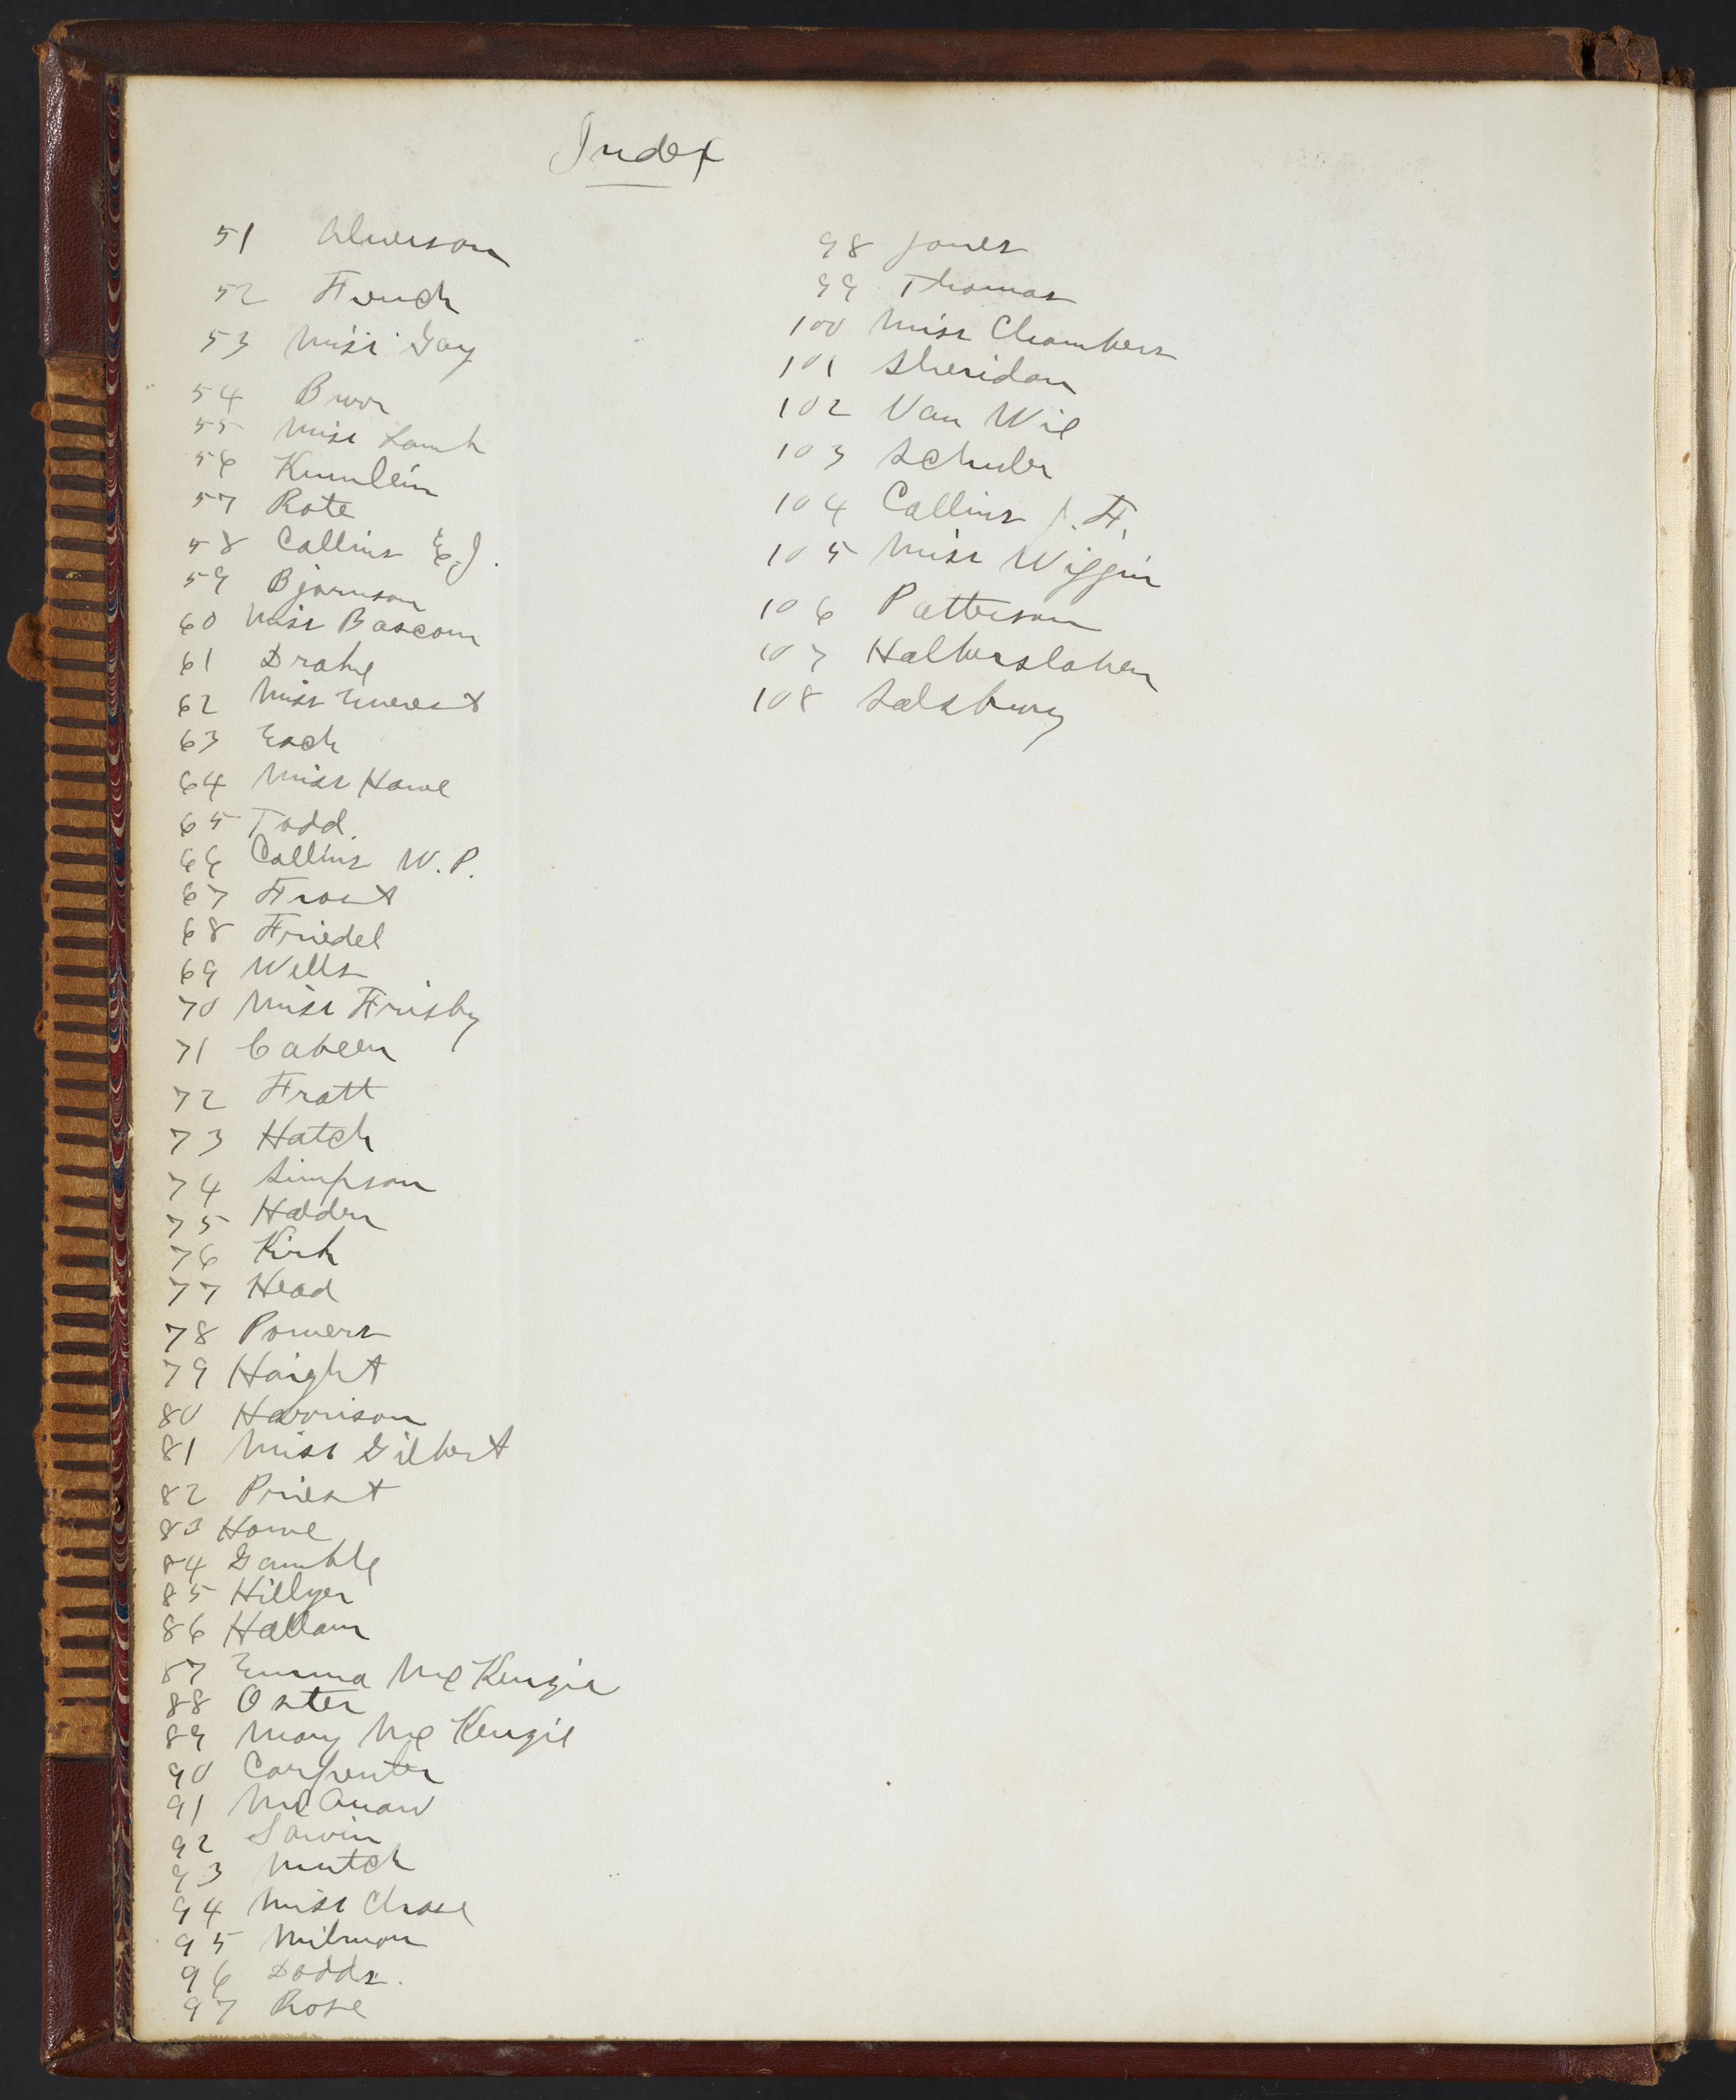 Index
51 Alverson
52 Finch
53 Miss Gay
54 Buor
55 Miss Lamb
56 Kumlein
57 Rote
58 Collins E.J.
59 Bjornson
60 Miss Bascom
61 Drake
62 Miss Everest
63 Esch
64 Miss Howe
65 Todd.
66 Collins W.P.
67 Frost
68 Friedel
69 Wells
70 Miss Frisby
71 Cabeen
72 Fratt
73 Hatch
74 Simpson
75 Holden
76 Kirk
77 Head
78 Powers
79 Haight
80 Harrison
81 Miss Gilbert
82 Priest
83 Howe
84 Gamble
85 Hillyer
86 Hallam
87 Emma McKenzie
88 Oster
89 Mary McKenzie
90 Carpenter
91
92
93 Mutch
94 Miss Chase
95 Wilmon
96 Dodds.
97 Rose
98 Jones
99 Thomas
100 Miss Chambers
101 Sheridan
102 Van Wie
103 Schuler
104 Collins J.F.
105 Miss Wiggin
106 Patterson
107 Halbersleben
108 Salsbury